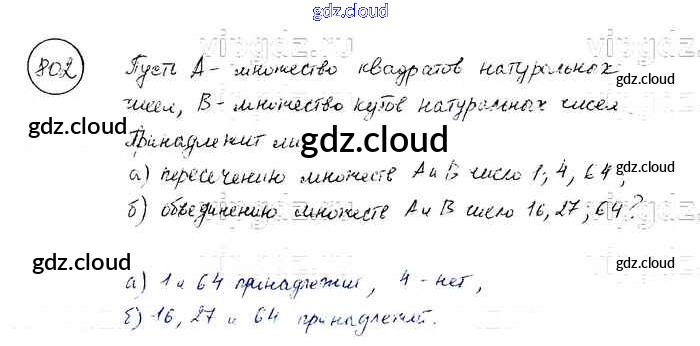 gdz.cloud
802 Пусть А - множество квадратов натуральных
чисел, В - множество кубов натуральных чисел
Принадлежит ли
а) пересечению множеств А и В число 1, 4, 64,
б) объединению множеств А и В число 16, 27, 64?
gdz.cloud
gdz.cloud
gdz.cloud
gdz.cloud
gdz.cloud
gdz.cloud
а) 1 и 64 принадлежит, 4 - нет,
б) 16, 27 и 64 принадлежит.